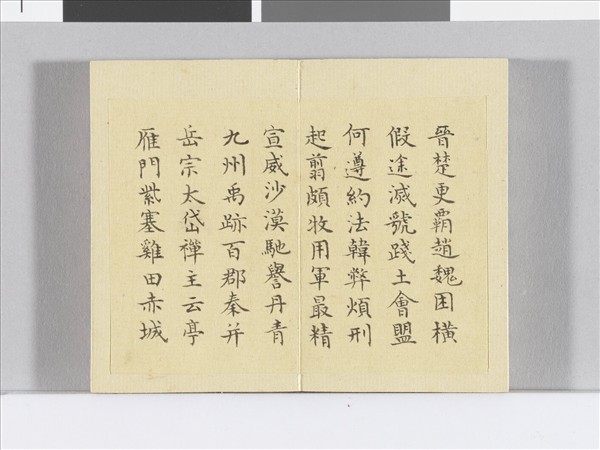 晉楚更霸趙魏困橫
假途滅虢踐土會盟
何遵約法韓弊煩刑
起翦頗牧用軍最精
宣威沙漠馳譽丹青
九州禹跡百郡秦并
岳宗太岱禪主云亭
雁門紫塞雞田赤城